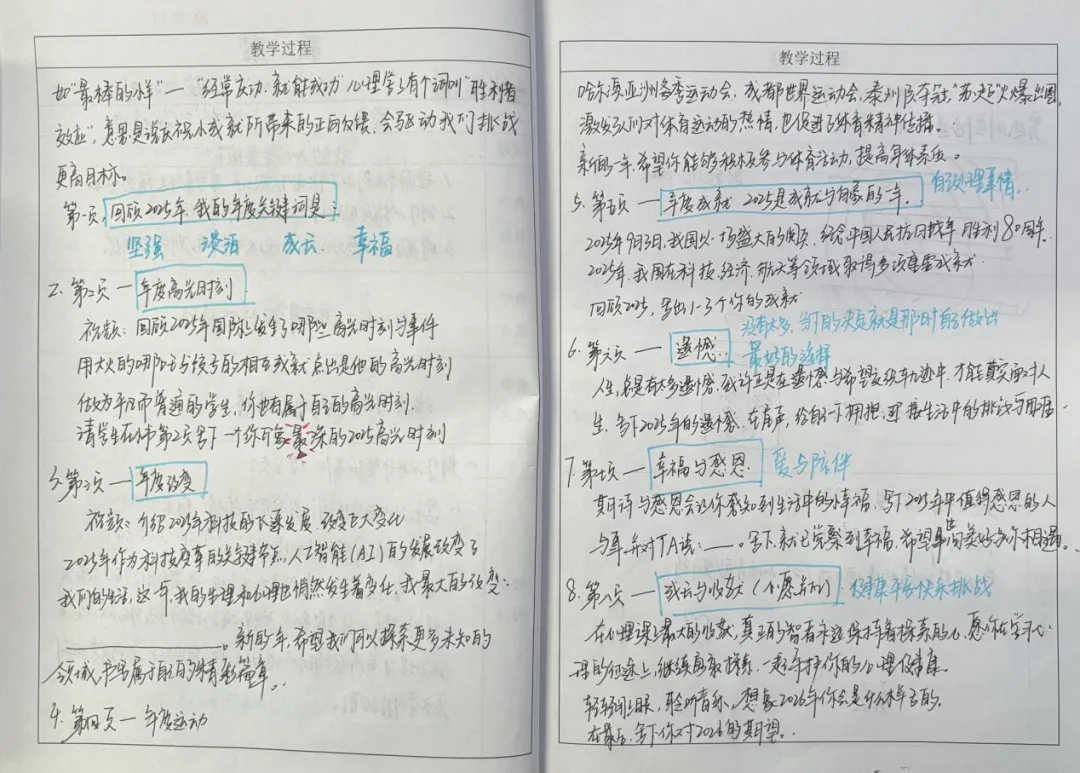 教学过程
如"最棒的小样"—"经常反动.就能成功"心理学上有个词叫"胜利者
效应",意思是说庆祝小成就所带来的正向反馈,会驱动我们挑战
更高目标。
第一页,回顾2025年,我的年度关键词是:
坚强 淡泊 成长 幸福
2. 第二页 — 年度高光时刻
视频: 回顾2025年国际上发生了哪些高光时刻与事件
用大火的哪吒与敖丙的相互成就点出是他的高光时刻
做为平凡而普通的学生,你也有属于自己的高光时刻.
请学生在小书第2页写下一个你印象最深的2025高光时刻
3. 第三页 — 年度改变
视频: 介绍2025年科技的飞速发展,改变巨大变化
2025年作为科技变革的关键节点,人工智能(AI)的发展改变了
我们的生活,这一年,我的生理和心理也悄然发生着变化,我最大的改变:
。新的一年,希望我们可以探索更多未知的
领域,书写属于自己的精彩篇章。
4. 第四页 — 年度运动
教学过程
哈尔滨亚洲冬季运动会,成都世界运动会,泰州队夺冠,"苏超"火爆出圈,
激发了人们对体育运动的热情,也促进了体育精神传播。
新的一年,希望你能够积极参与体育活动,提高身体素质。
5. 第五页 — 年度成就 2025是成就与自豪的一年. 自己处理事情.
2025年9月3日,我国以一场盛大的阅兵,纪念中国人民抗日战争胜利80周年.
2025年,我国在科技、经济、航天等领域取得多项重要成就.
回顾2025,写出1-3个你的成就
没有太多,当下的决定就是那时自己做出
6. 第六页 — 遗憾. 最好的选择
人生,总是有太多遗憾.或许正是在遗憾与希望交织轨迹中,才能真实面对人
生.写下2025年的遗憾.在音声,给自己一个拥抱,迎接生活中的挑战与困惑.
7. 第七页 — 幸福与感恩. 爱与陪伴
期许与感恩会让你感知到生活中的小幸福.写下2025年中值得感恩的人
与事,并对TA说:——。写下就已觉察到幸福,希望世间美好与你相遇。
8. 第八页 — 成长与收获(小愿景) 健康平安快乐挑战
在心理课上最大的收获,真正的智者永远保持着探索的心,愿你在学习心
理的征途上,继续勇敢探索,一起守护你的心理健康.
轻轻闭上眼,聆听音乐,想象2026年你会是什么样子的.
在最后,写下你对2026的期望..